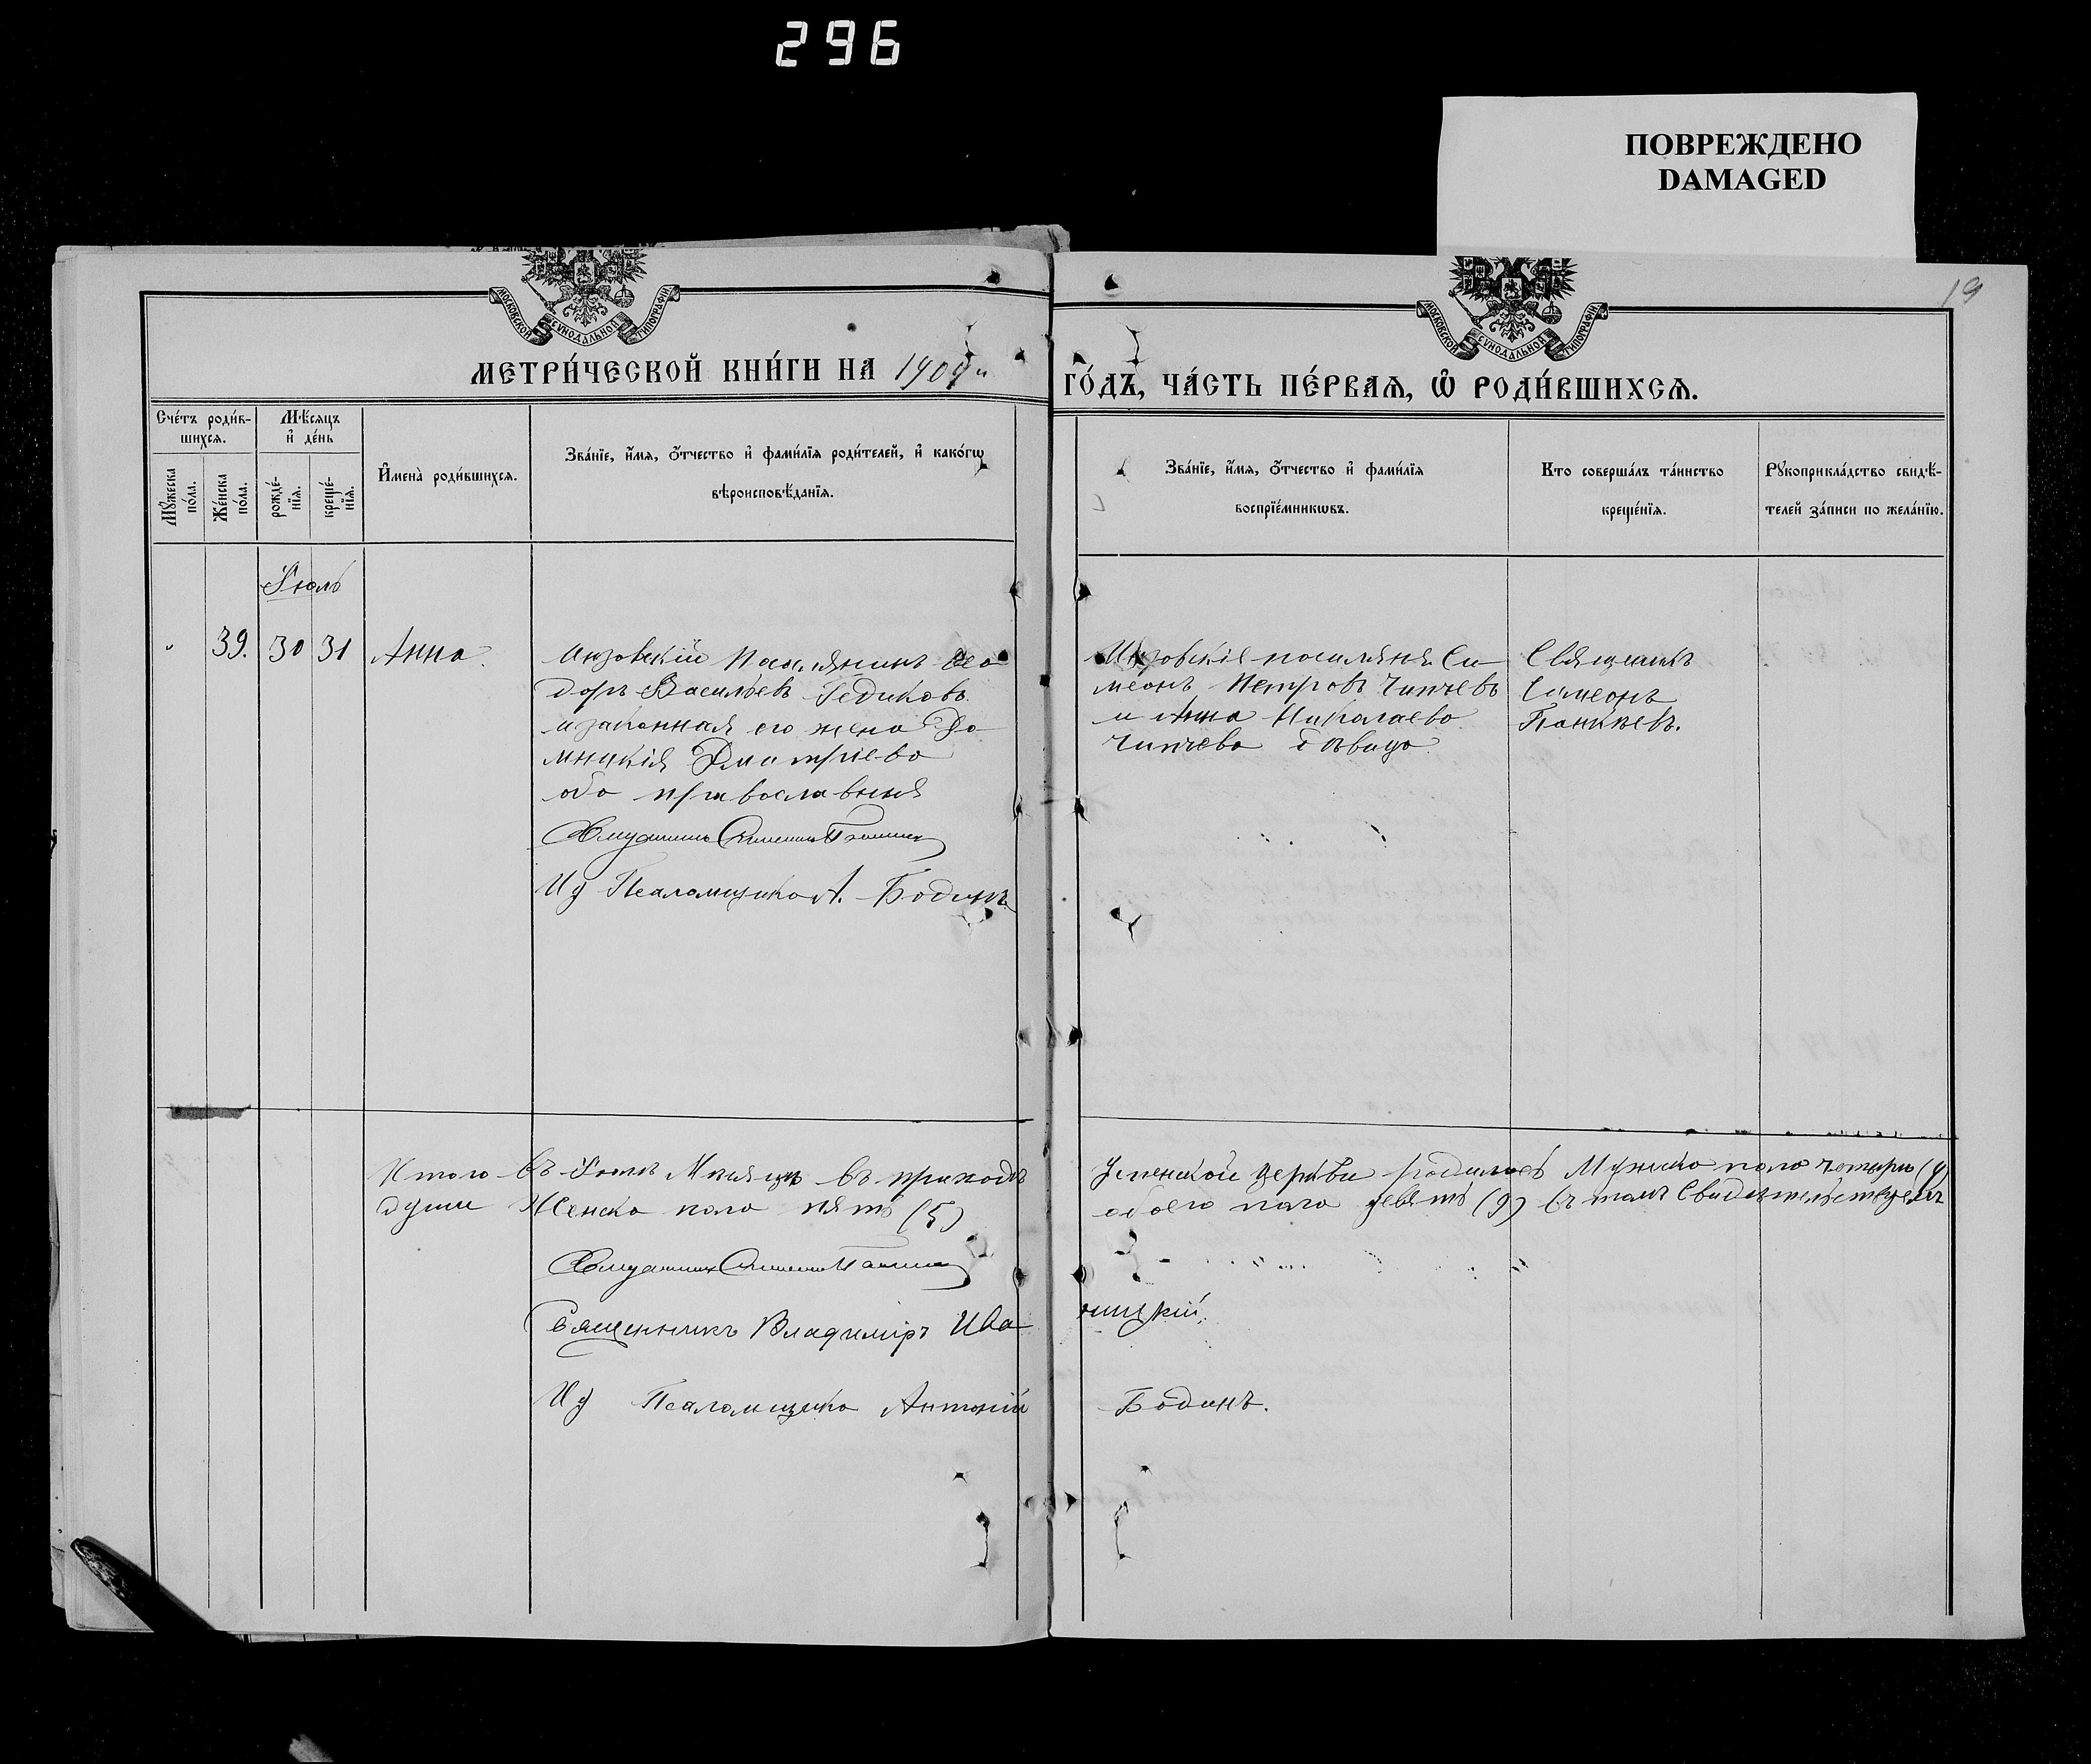 296
ПОВРЕЖДЕНО
DAMAGED
19
МОСКОВСКОЙ СѴНОДАЛЬНОЙ ТИПОГРАФІИ
МОСКОВСКОЙ СѴНОДАЛЬНОЙ ТИПОГРАФІИ
МЕТРИ́ЧЕСКОЙ КНИ́ГИ НА 1904 и
ГО́ДЪ, ЧА́СТЬ ПЕ́РВАѦ, Ѡ҆ РОДИ́ВШИХСѦ.
Сче́тъ роди́в-
шихсѧ.
Мꙋ́жеска по́ла.
Же́нска по́ла.
Мѣ́сѧцъ
и҆ де́нь
рожде́-
нїѧ.
креще́-
нїѧ.
И҆мена̀ роди́вшихсѧ.
Зва́нїе, и҆́мѧ, ѻ҆́тчество и҆ фамі́лїѧ роди́телей, и҆ како́гѡ
вѣроисповѣ́данїѧ.
Зва́нїе, и҆́мѧ, ѻ҆́тчество и҆ фамі́лїѧ
воспрїе́мникѡвъ.
Кто соверша́лъ та́инство
креще́нїѧ.
Рꙋкоприкла́дство свидѣ́-
телей за́писи по жела́нїю.
Іюль
" 39. 30 31 Анна.
Инзовскій поселянинъ Ѳео
доръ Васильевъ Гедиковъ
и законная его жена До
мникія Дмитріева
оба православныя
Священникъ Симеонъ
Ид Псаломщика А. Бодинъ
Инзовскіе поселяне Си
меонъ Петровъ Чипчевъ
и Анна Николаева
Чипчева дѣвица
Священникъ
Симеонъ
Панкѣевъ.
Итого въ Іюлѣ Мѣсяцѣ въ приходѣ Успенской церкви родилось Мужска пола четыре (4)
души Женска пола пять (5) обоего пола девять (9) въ томъ Свидѣтельствуемъ
Священникъ Симеонъ
Священникъ Владиміръ Ива ницкій,
Ид Псаломщика Антоній Бодинъ.